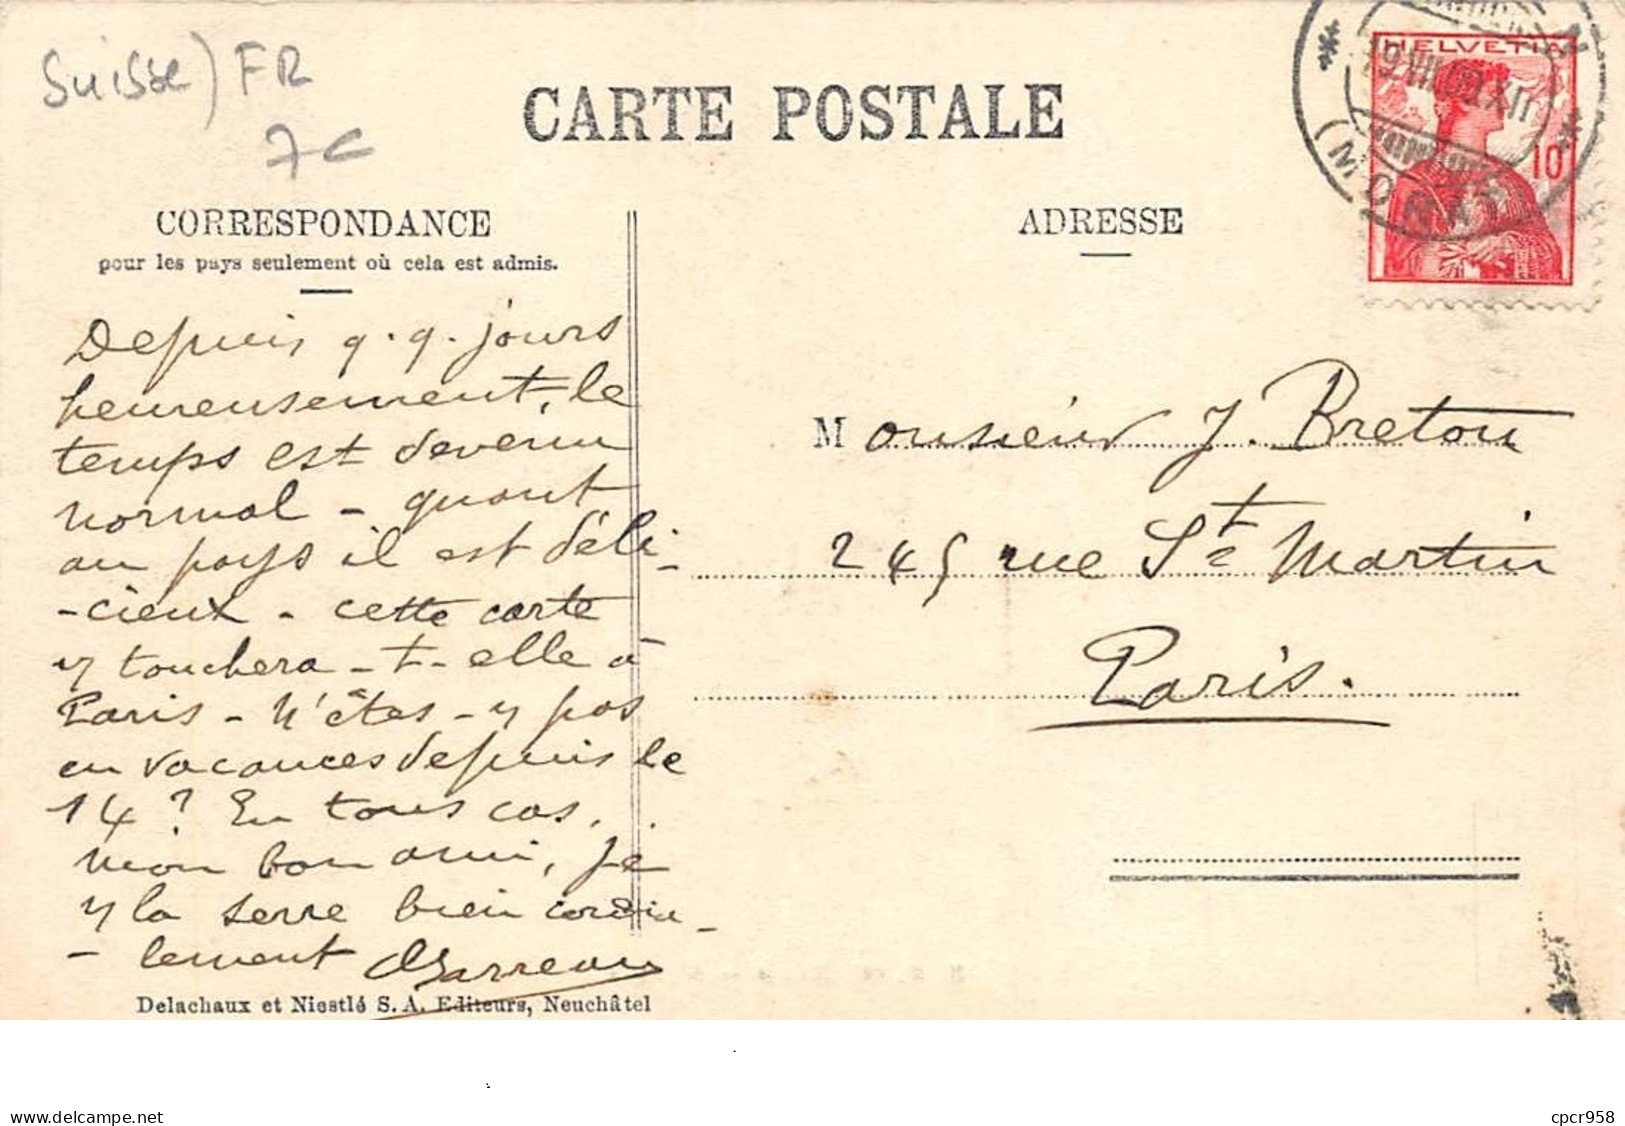 Suisse) FR
7c
CARTE POSTALE
HELVETIA
10
(MORAT)
CORRESPONDANCE
pour les pays seulement où cela est admis.
ADRESSE
Depuis q.q. jours
heureusement, le
temps est devenu
normal - quant
au pays il est déli-
-cieux - cette carte
y touchera-t-elle à
Paris - N'êtes-y pas
en vacances depuis le
14? En tous cas,
mon bon ami, je
y la serre bien cordia-
-lement
Monsieur J. Breton
245 rue St Martin
Paris.
Delachaux et Niestlé S. A. Editeurs, Neuchâtel
www.delcampe.net
cpcr958